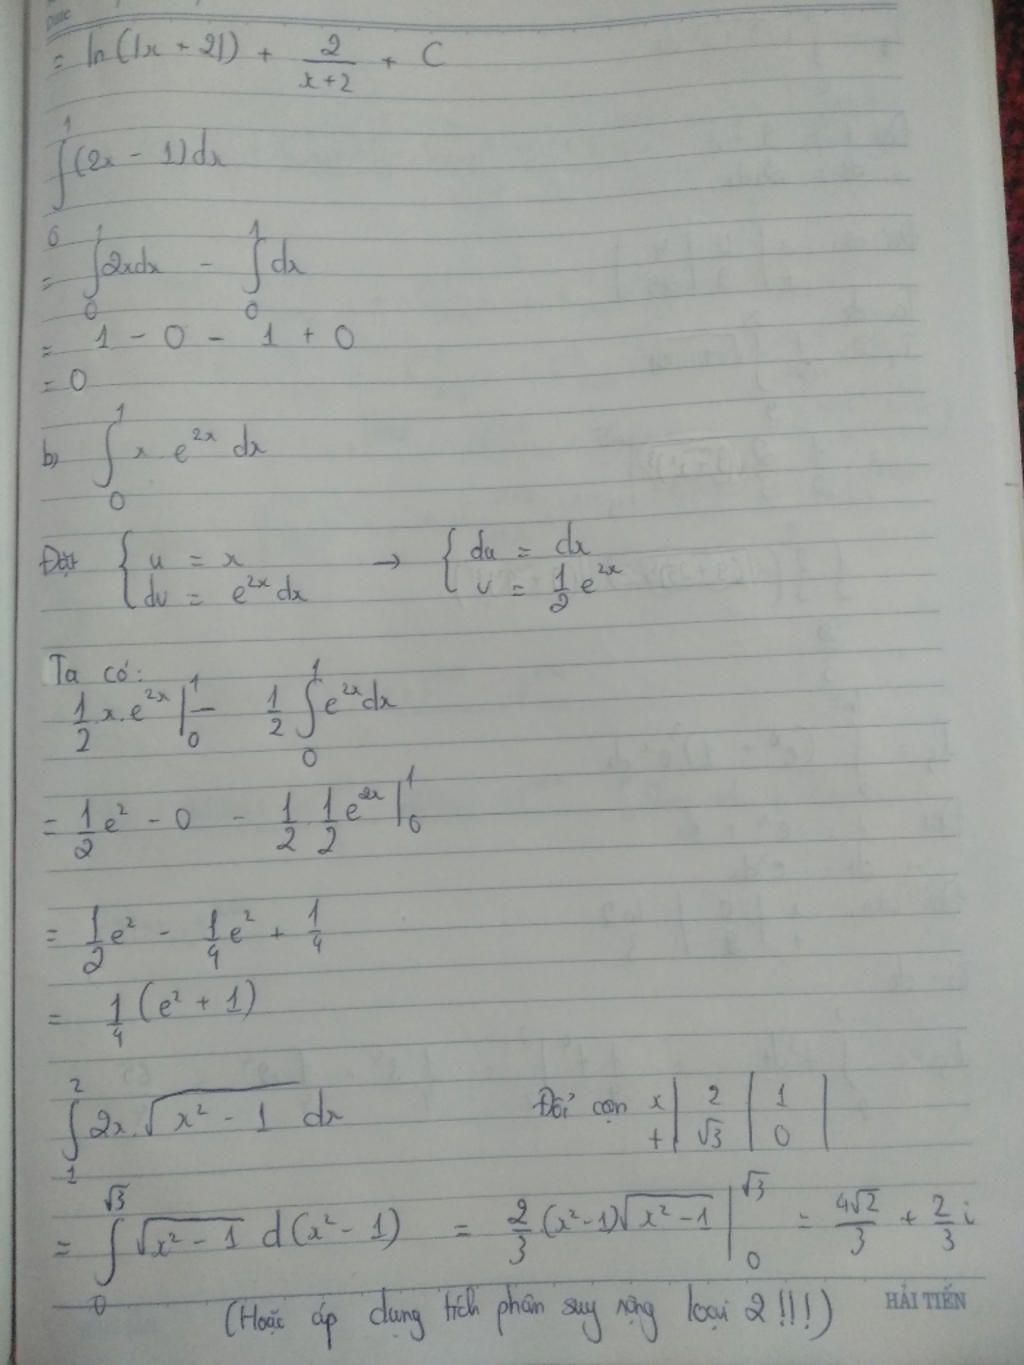 Date
= ln(|x + 2|) + 2/(x+2) + C
∫₀¹ (2x - 1)dx
= ∫₀¹ 2xdx - ∫₀¹ dx
= 1 - 0 - 1 + 0
= 0
b) ∫₀¹ x e^{2x} dx
Đặt { u = x → { du = dx
dv = e^{2x} dx v = 1/2 e^{2x}
Ta có:
1/2 x.e^{2x} |₀¹ - 1/2 ∫₀¹ e^{2x} dx
= 1/2 e² - 0 - 1/2 1/2 e^{2x} |₀¹
= 1/2 e² - 1/4 e² + 1/4
= 1/4 (e² + 1)
∫₁² 2x.√(x² - 1) dx Đổi cận x | 2 | 1 |
t | √3 | 0 |
= ∫₀^{√3} √(x² - 1) d(x² - 1) = 2/3 (x²-1)√(x² - 1) |₀^{√3} = 4√2/3 + 2/3 i
(Hoặc áp dụng tích phân suy rộng loại 2!!!) HẢI TIẾN